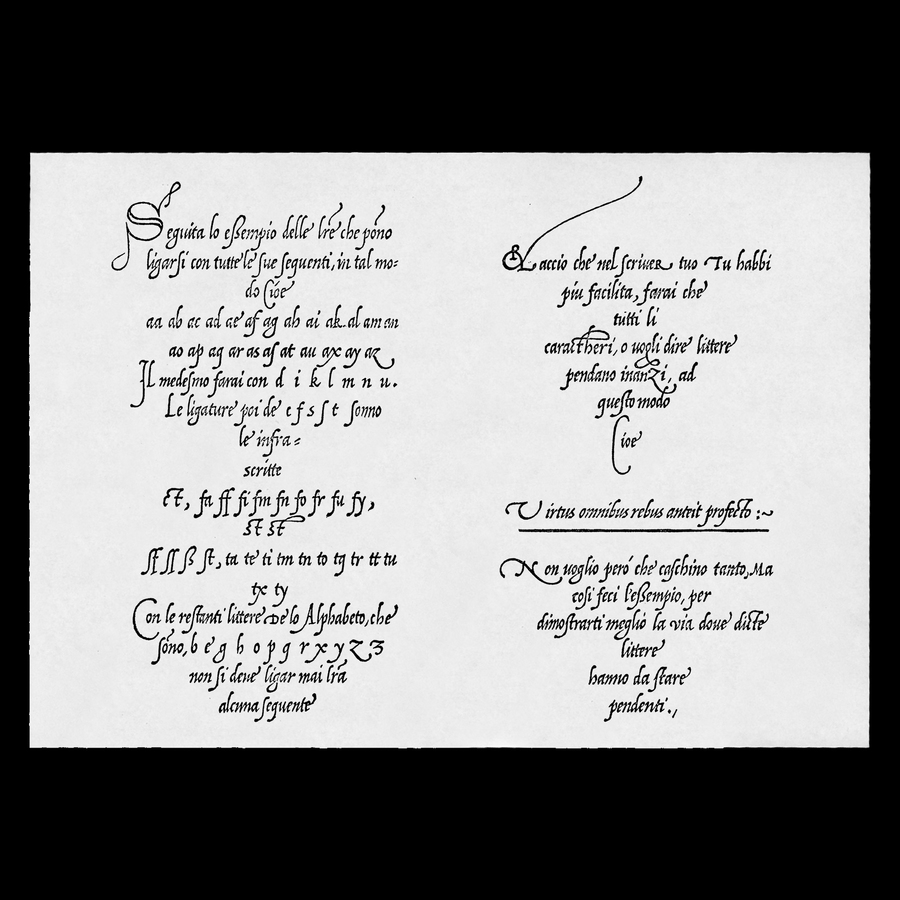 Seguita lo eſſempio delle lr̄e che põno
ligarſi con tutte le ſue ſequenti, in tal mo=
do Cioe
aa ab ac ad ae af ag ah ai ak al am an
ao ap aq ar as aſ at au ax ay az
Il medeſmo farai con d i k l m n u.
Le ligature poi de c f s ſ t ſonno
le infra=
scritte
ct, fa ff fi fm fn fo fr fu fy,
st st
ſf ſſ ß ſt, ta te ti tm tn to tq tr tt tu
tx ty
Con le reſtanti littere De lo Alphabeto, che
ſõno, b e g h o p q r x y z ʒ
non ſi deue ligar mai lr̄a
alcuna ſequente
Faccio che nel ſcriuer tuo Tu habbi
piu facilita, farai che
tutti li
caractheri, o uogli dire littere
pendano inanzi, ad
queſto modo
Cioe
Virtus omnibus rebus anteit profecto :~
Non uoglio peró che caſchino tanto, Ma
coſi feci l'eßempio, per
dimoſtrarti meglio la via doue dicte
littere
hanno da ſtare
pendenti.,